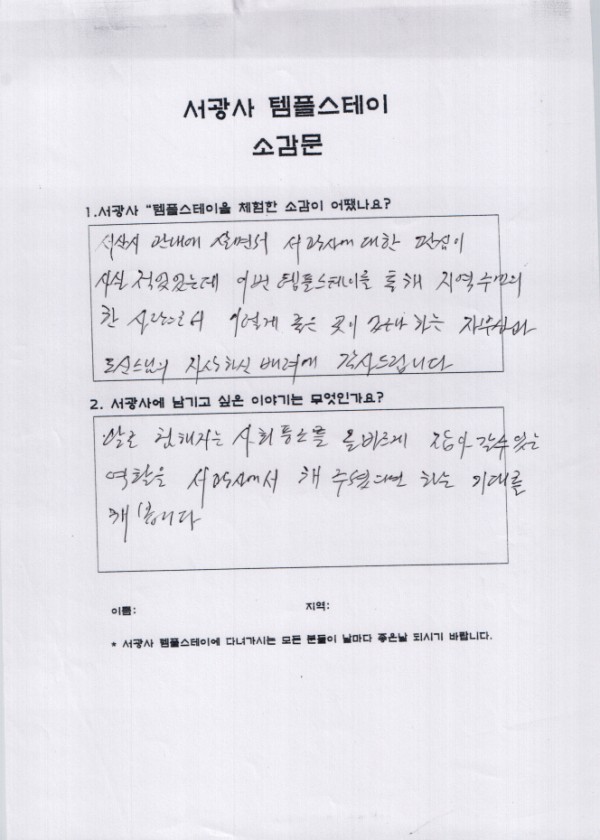 서광사 템플스테이
소감문
1.서광사 "템플스테이을 체험한 소감이 어땠나요?
서산시 관내에 살면서 서광사에 대한 관심이
사실 적었었는데 이번 템플스테이을 통해 지역주민의
한 사람으로서 이렇게 좋은 곳이 있나 하는 자부심과
도신스님의 자상하신 배려에 감사드립니다
2. 서광사에 남기고 싶은 이야기는 무엇인가요?
날로 험해지는 사회풍토를 올바르게 잡아 갈수있는
역할을 서광사에서 해 주셨으면 하는 기대를
해 봅니다
이름: 지역:
* 서광사 템플스테이에 다녀가시는 모든 분들이 날마다 좋은날 되시기 바랍니다.